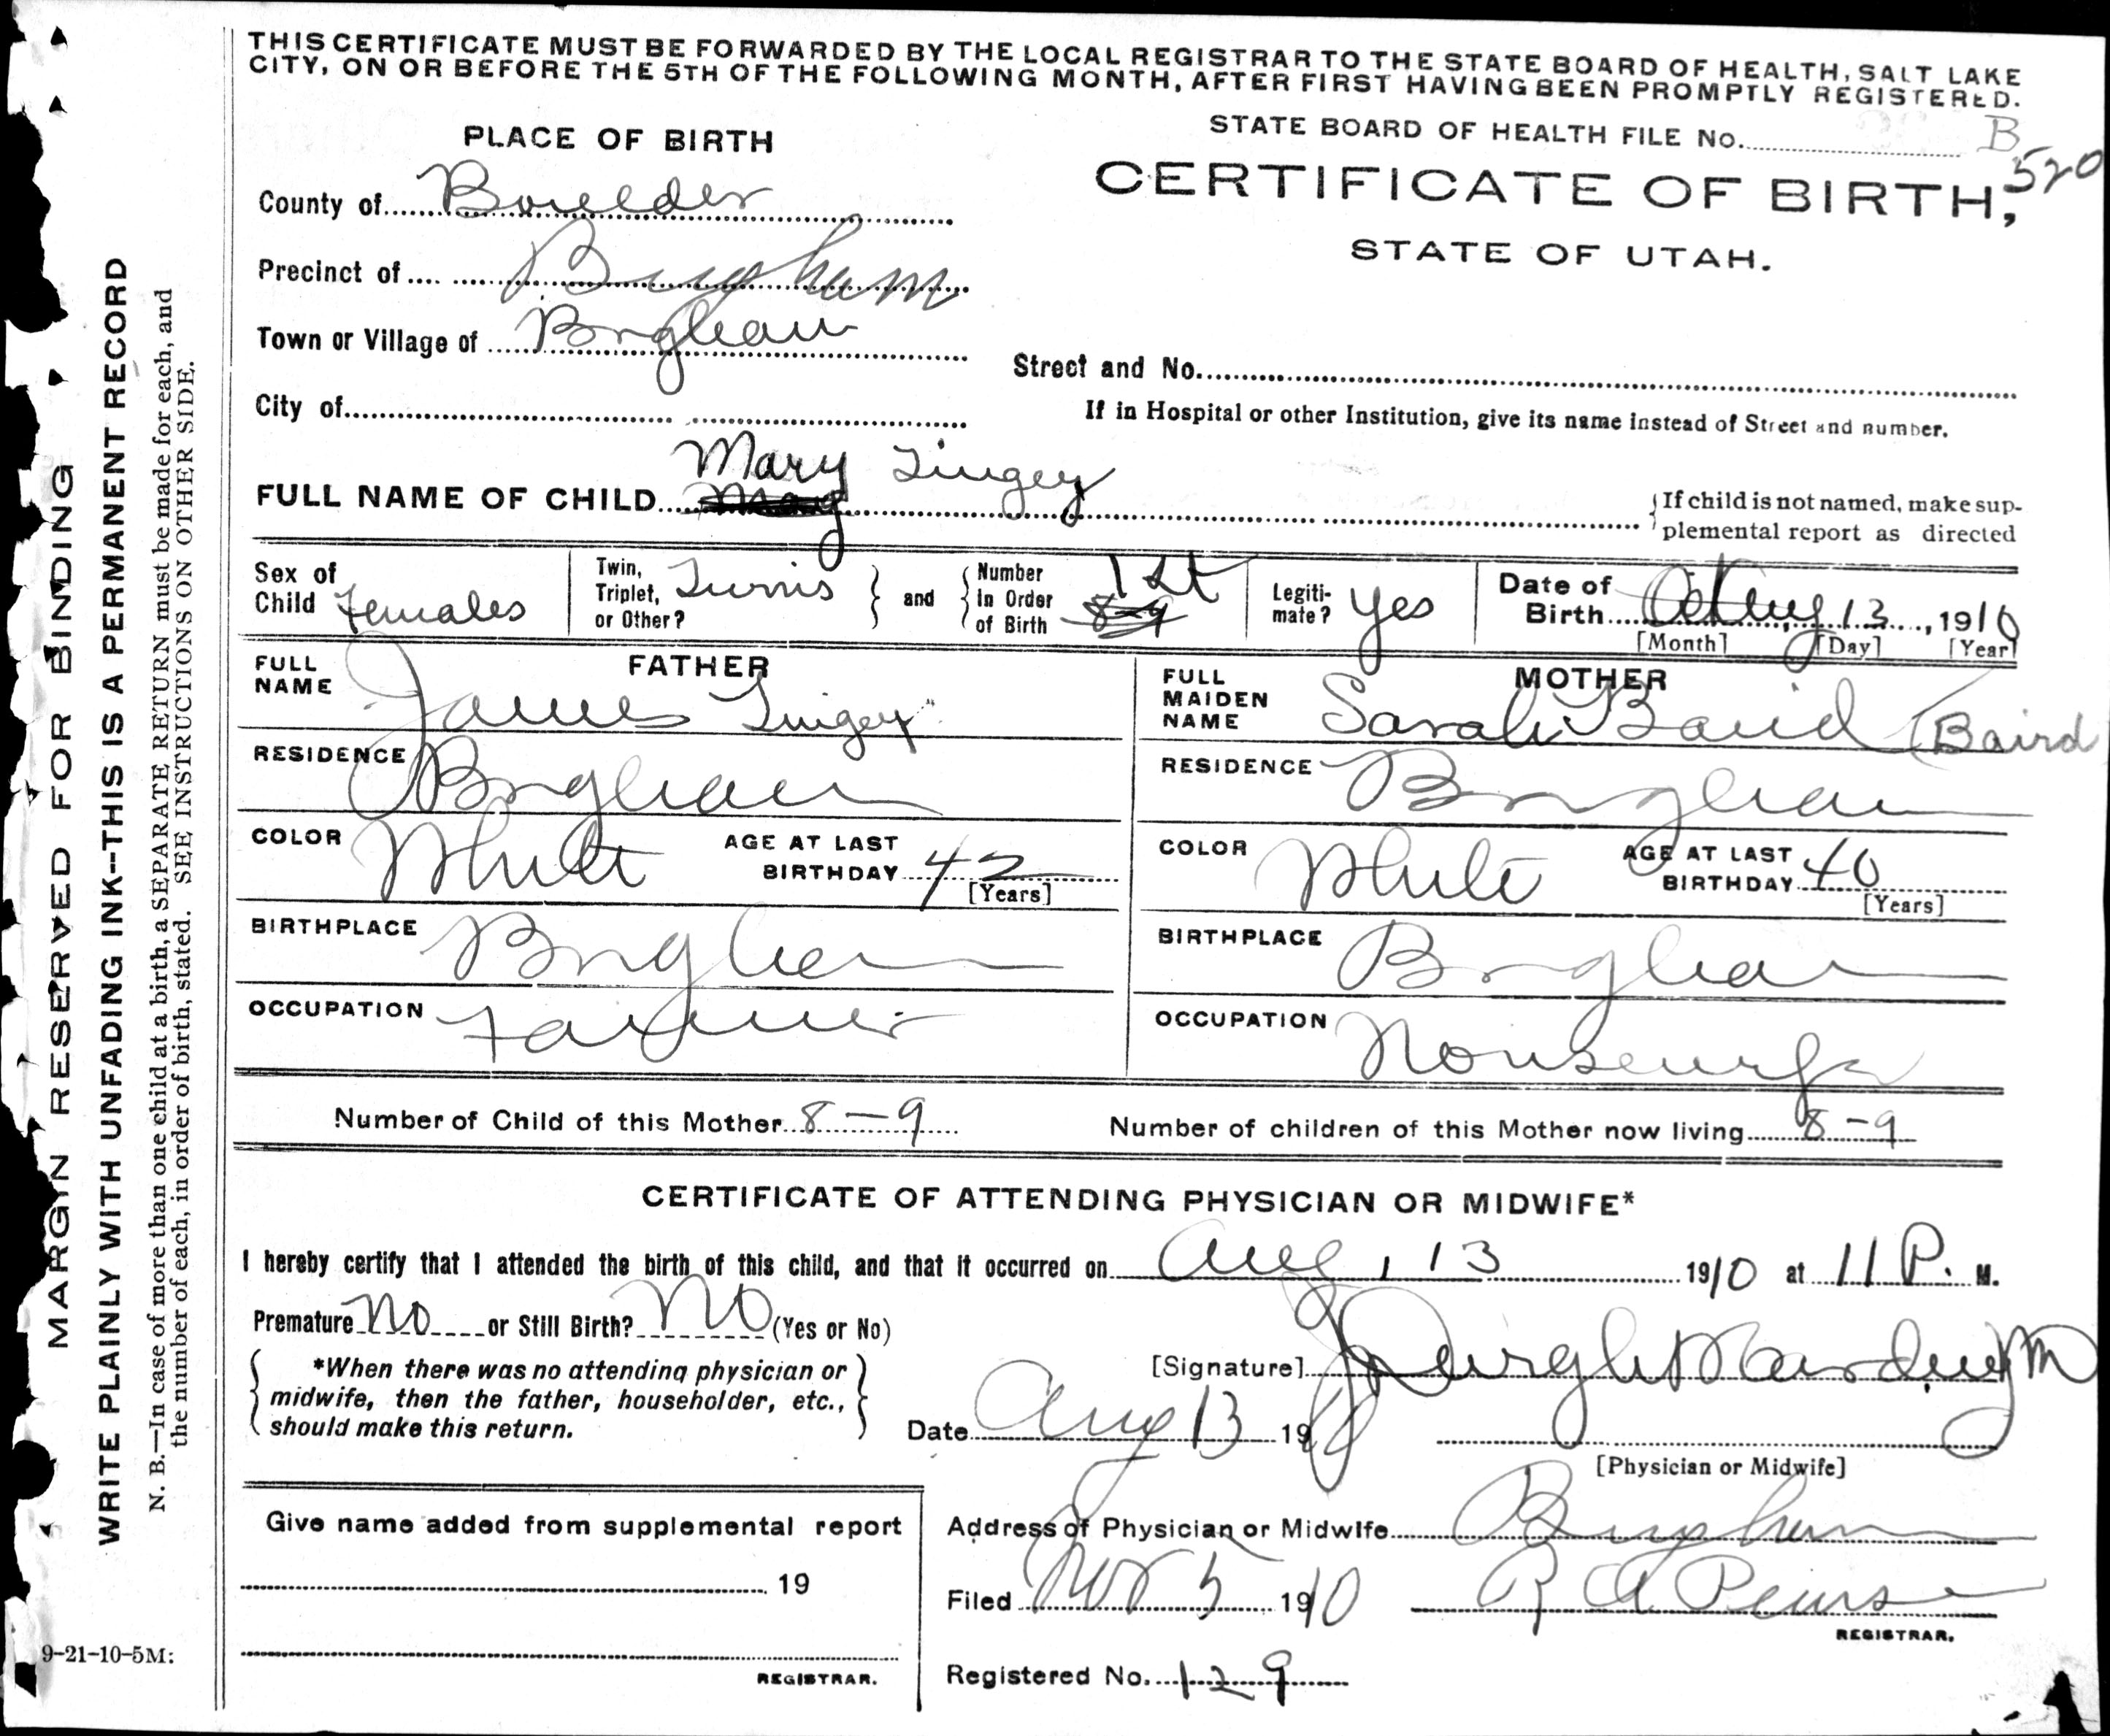 THIS CERTIFICATE MUST BE FORWARDED BY THE LOCAL REGISTRAR TO THE STATE BOARD OF HEALTH, SALT LAKE
CITY, ON OR BEFORE THE 5TH OF THE FOLLOWING MONTH, AFTER FIRST HAVING BEEN PROMPTLY REGISTERED.
STATE BOARD OF HEALTH FILE No. B
520
PLACE OF BIRTH
CERTIFICATE OF BIRTH,
STATE OF UTAH.
County of
Precinct of Bingham
Town or Village of
Street and No.
City of
If in Hospital or other Institution, give its name instead of Street and number.
Mary Tingey
FULL NAME OF CHILD
If child is not named, make sup-
plemental report as directed
Sex of Child Females
Twin, Triplet, or Other? Twins
and
Number In Order of Birth 1st 8-9
Legiti-mate? Yes
Date of Birth Aug 13, 1910
[Month] [Day] [Year]
FATHER
FULL NAME James Tingey
MOTHER
FULL MAIDEN NAME Sarah Baird (Baird
RESIDENCE
RESIDENCE
COLOR White AGE AT LAST BIRTHDAY 42 [Years]
COLOR White AGE AT LAST BIRTHDAY 40 [Years]
BIRTHPLACE
BIRTHPLACE
OCCUPATION Farmer
OCCUPATION Housewife
Number of Child of this Mother 8-9 Number of children of this Mother now living 8-9
CERTIFICATE OF ATTENDING PHYSICIAN OR MIDWIFE*
I hereby certify that I attended the birth of this child, and that it occurred on Aug, 13 1910 at 11 P. M.
Premature No or Still Birth? No (Yes or No)
*When there was no attending physician or
midwife, then the father, householder, etc.,
should make this return.
[Signature]
Date Aug 13 1910
[Physician or Midwife]
Give name added from supplemental report
19
REGISTRAR.
Address of Physician or Midwife Bingham
Filed Nov 5 1910 R A Pearse
REGISTRAR.
Registered No. 129
MARGIN RESERVED FOR BINDING
WRITE PLAINLY WITH UNFADING INK--THIS IS A PERMANENT RECORD
N. B.—In case of more than one child at a birth, a SEPARATE RETURN must be made for each, and
the number of each, in order of birth, stated. SEE INSTRUCTIONS ON OTHER SIDE.
9-21-10-5M: